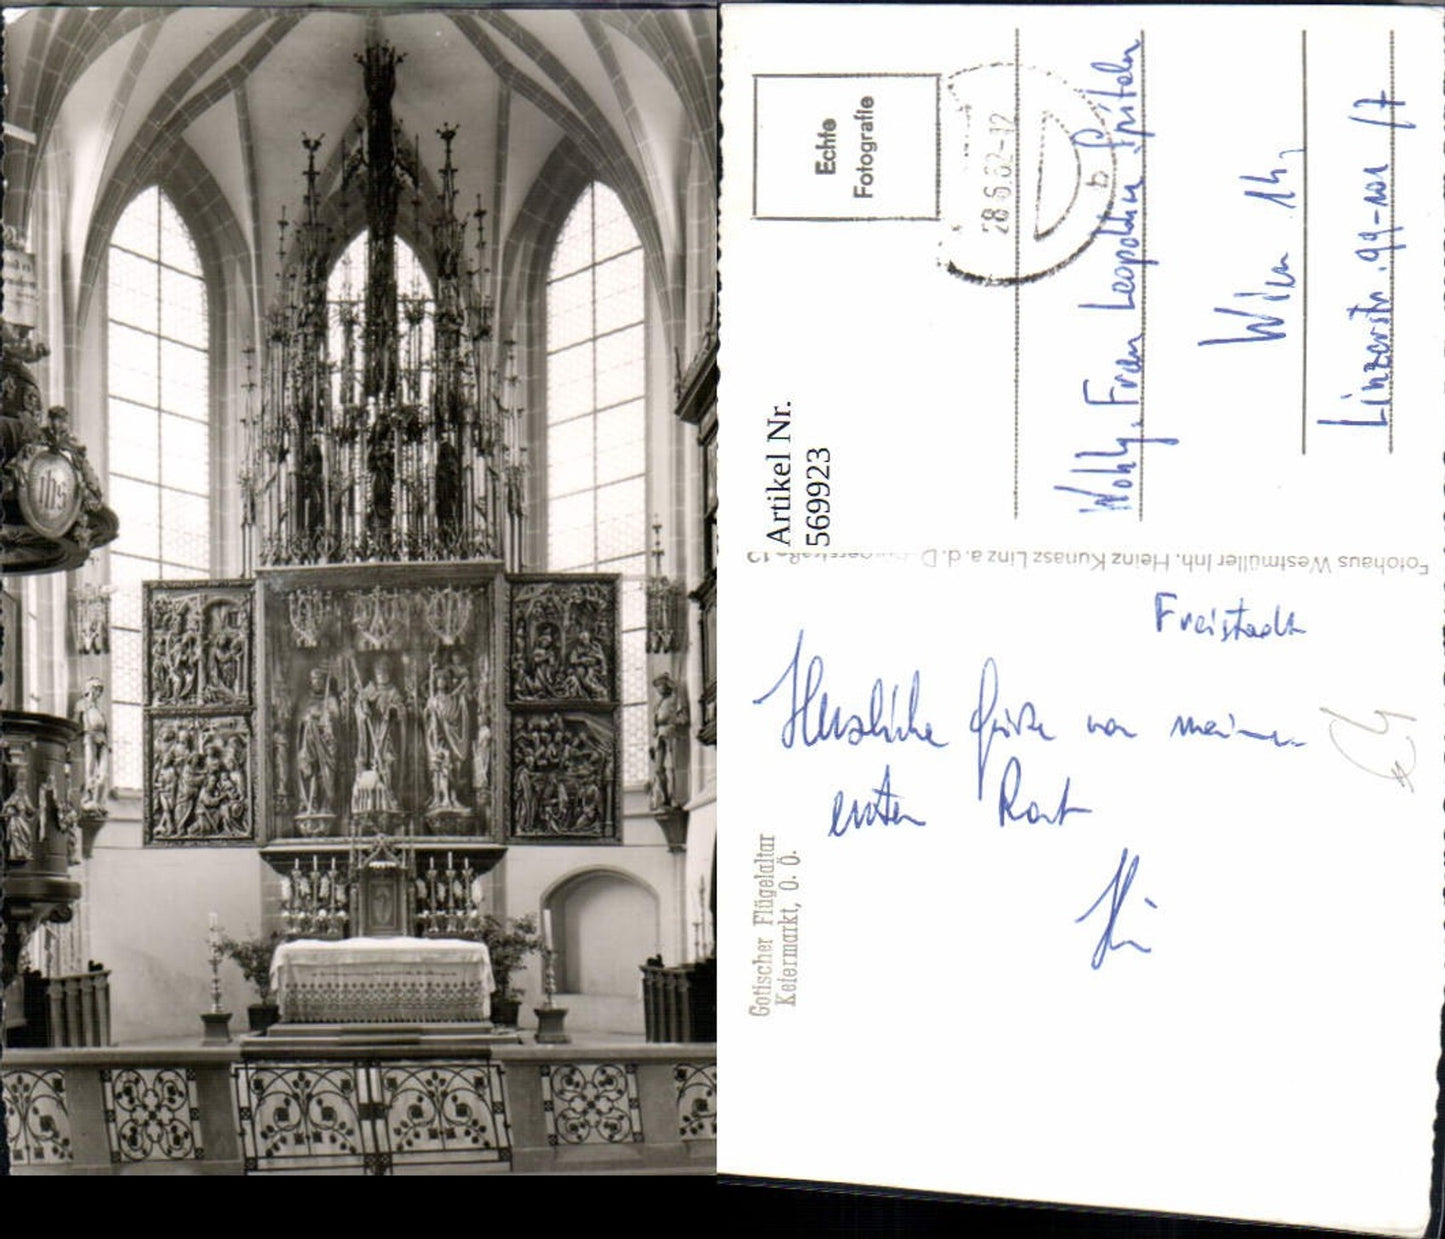 ihs
Echte
Fotografie
28.6.62-12
b
Artikel Nr.
569923
Frau Leopoldine
Wien 14,
Linzerstr. 99-101 /7
Fotohaus Westmüller Inh. Heinz Kunasz Linz a. d. D.
Freistadt
Herzliche Grüße von meiner
ersten Rast
Gotischer Flügelaltar
Kefermarkt, O. Ö.